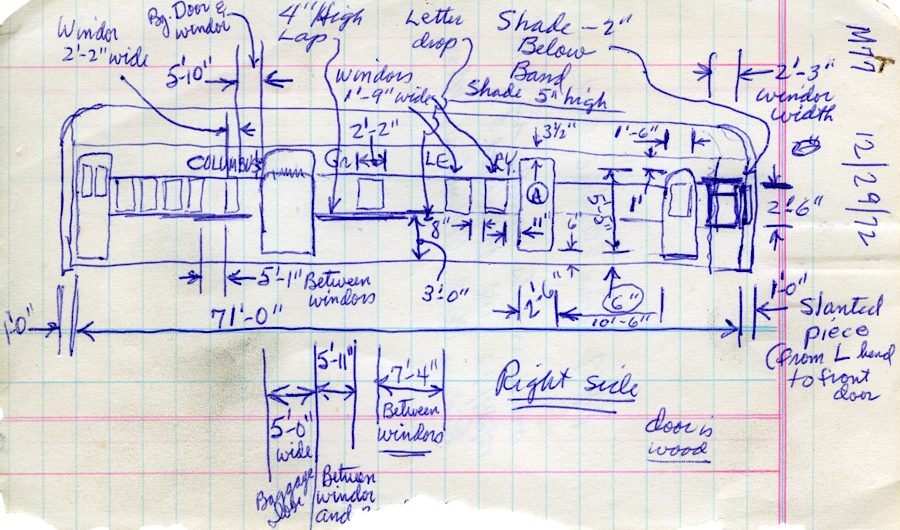 Windor
2'-2" wide
Bg. Door &
windor
5'-10"
4" High
Lap
Letter
drop
Shade - 2"
Below
Band
Shade 5" high
windors
1'-9" wide
2'-3"
windor
width
12/29/72
2'-2"
3½"
1'-6"
COLUMBUS
Gr
LE
LY.
A
5'-5"
1"
2'-6"
8"
11"
6"
5'-1" Between
windors
3'-0"
2'-6"
6"
10'-6"
1'-0"
1'-0"
71'-0"
Slanted
piece
(from L bend
to front
door
5'-11"
7'-4"
Between
windors
Right side
door is
wood
5'-0"
wide
Baggage
Door
Between
windor
and ?